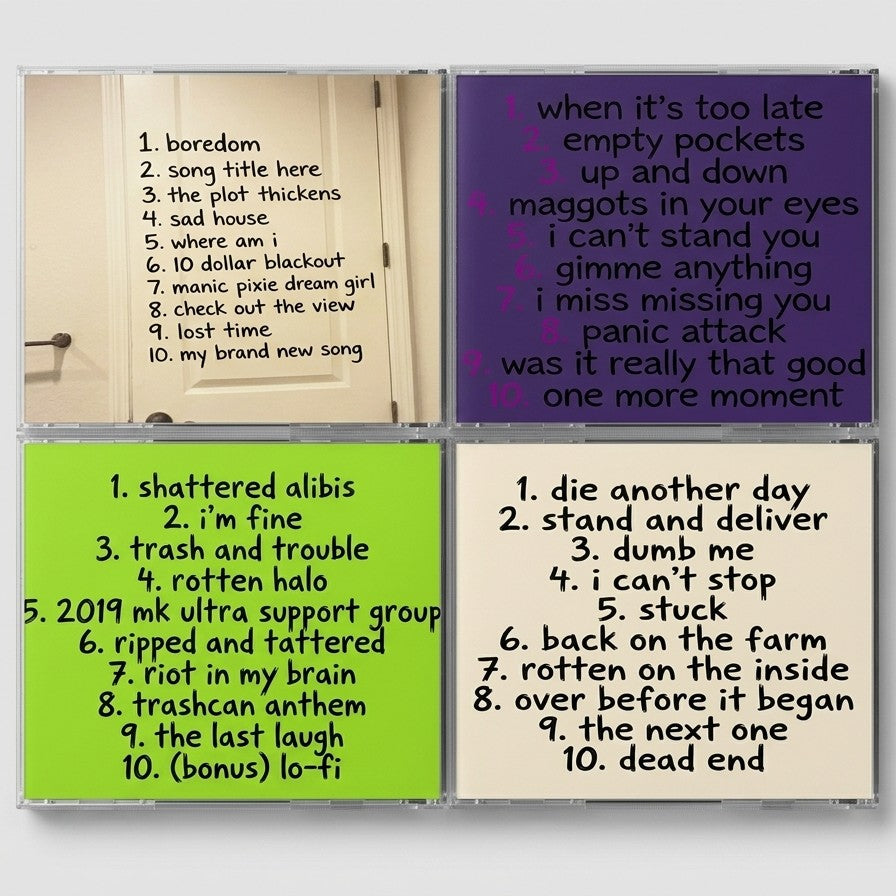 1. boredom
2. song title here
3. the plot thickens
4. sad house
5. where am i
6. 10 dollar blackout
7. manic pixie dream girl
8. check out the view
9. lost time
10. my brand new song
1. when it's too late
2. empty pockets
3. up and down
4. maggots in your eyes
5. i can't stand you
6. gimme anything
7. i miss missing you
8. panic attack
9. was it really that good
10. one more moment
1. shattered alibis
2. i'm fine
3. trash and trouble
4. rotten halo
5. 2019 mk ultra support group
6. ripped and tattered
7. riot in my brain
8. trashcan anthem
9. the last laugh
10. (bonus) lo-fi
1. die another day
2. stand and deliver
3. dumb me
4. i can't stop
5. stuck
6. back on the farm
7. rotten on the inside
8. over before it began
9. the next one
10. dead end